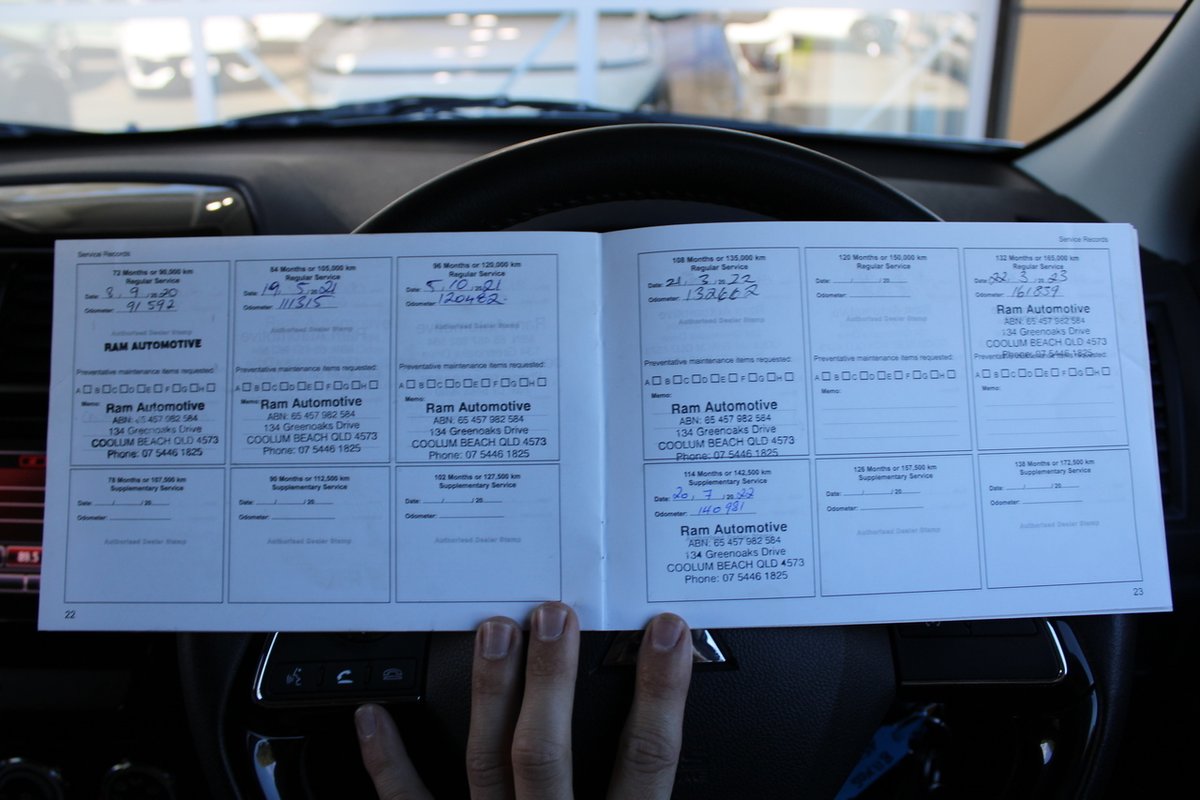 Service Records
72 Months or 90,000 km
Regular Service
Date: 3, 9, /20 20
Odometer: 91 592
Authorised Dealer Stamp
RAM AUTOMOTIVE
Preventative maintenance items requested:
A B C D E F G H
Memo:
Ram Automotive
ABN: 65 457 982 584
134 Greenoaks Drive
COOLUM BEACH QLD 4573
Phone: 07 5446 1825
84 Months or 105,000 km
Regular Service
Date: 19, 5, /20 21
Odometer: 111315
Authorised Dealer Stamp
Preventative maintenance items requested:
A B C D E F G H
Memo:
Ram Automotive
ABN: 65 457 982 584
134 Greenoaks Drive
COOLUM BEACH QLD 4573
Phone: 07 5446 1825
96 Months or 120,000 km
Regular Service
Date: 5, 10, /20 21
Odometer: 120482
Authorised Dealer Stamp
Preventative maintenance items requested:
A B C D E F G H
Memo:
Ram Automotive
ABN: 65 457 982 584
134 Greenoaks Drive
COOLUM BEACH QLD 4573
Phone: 07 5446 1825
78 Months or 97,500 km
Supplementary Service
Date: / /20
Odometer:
Authorised Dealer Stamp
90 Months or 112,500 km
Supplementary Service
Date: / /20
Odometer:
Authorised Dealer Stamp
102 Months or 127,500 km
Supplementary Service
Date: / /20
Odometer:
Authorised Dealer Stamp
22
Service Records
108 Months or 135,000 km
Regular Service
Date: 21, 3, /20 22
Odometer: 132662
Authorised Dealer Stamp
Preventative maintenance items requested:
A B C D E F G H
Memo:
Ram Automotive
ABN: 65 457 982 584
134 Greenoaks Drive
COOLUM BEACH QLD 4573
Phone: 07 5446 1825
120 Months or 150,000 km
Regular Service
Date: / /20
Odometer:
Authorised Dealer Stamp
Preventative maintenance items requested:
A B C D E F G H
Memo:
132 Months or 165,000 km
Regular Service
Date: 22, 3, /20 23
Odometer: 161859
Ram Automotive
ABN: 65 457 982 584
134 Greenoaks Drive
COOLUM BEACH QLD 4573
Phone: 07 5446 1825
Preventative maintenance items requested:
A B C D E F G H
Memo:
114 Months or 142,500 km
Supplementary Service
Date: 20, 7, /20 22
Odometer: 140981
Ram Automotive
ABN: 65 457 982 584
134 Greenoaks Drive
COOLUM BEACH QLD 4573
Phone: 07 5446 1825
126 Months or 157,500 km
Supplementary Service
Date: / /20
Odometer:
Authorised Dealer Stamp
138 Months or 172,500 km
Supplementary Service
Date: / /20
Odometer:
Authorised Dealer Stamp
23